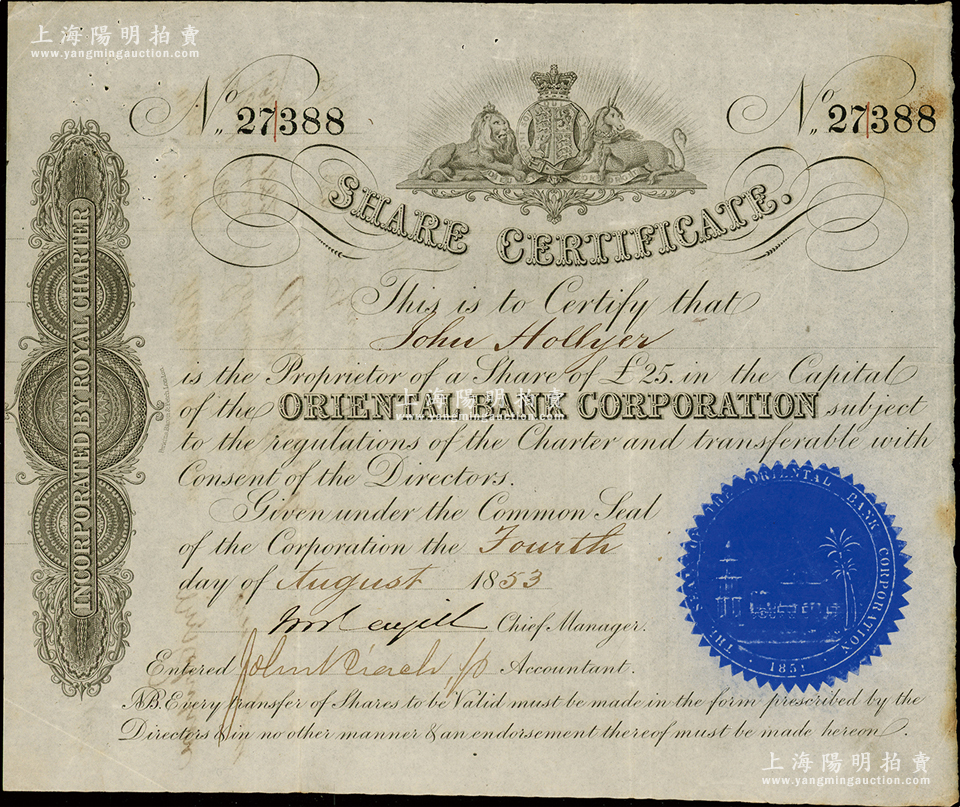 上海陽明拍賣
www.yangmingauction.com
No. 27/388
No. 27/388
SHARE CERTIFICATE.
INCORPORATED BY ROYAL CHARTER
This is to Certify that
John Hollyer
is the Proprietor of a Share of £25. in the Capital
of the ORIENTAL BANK CORPORATION subject
上海陽明拍賣
www.yangmingauction.com
to the regulations of the Charter and transferable with
Consent of the Directors.
Given under the Common Seal
of the Corporation the Fourth
day of August 1853
Chief Manager.
Entered John Accountant.
THE SEAL OF THE ORIENTAL BANK CORPORATION
1851
N.B. Every transfer of Shares to be Valid must be made in the form prescribed by the
Directors & in no other manner & an endorsement thereof must be made hereon.
上海陽明拍賣
www.yangmingauction.com